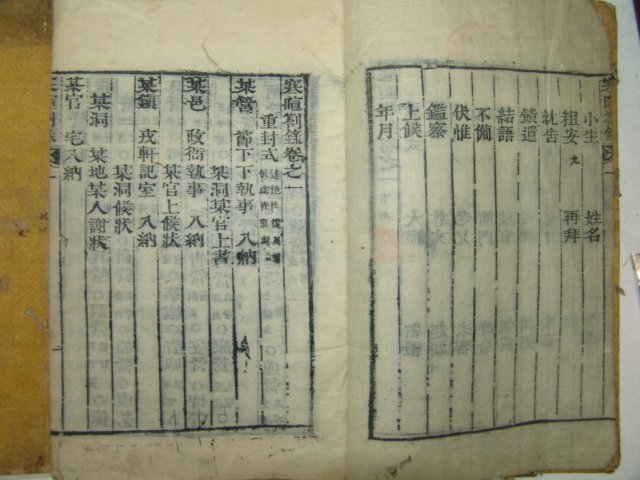 小生 姓名
粗安 九 再拜
就告
饋遺
結語
不備
伏惟
鑑察
上候
年月
寒暄劄錄卷之一
重封式
某營 節下下執事 入納
某洞某官上書
某邑 政衙執事 入納
某官上候狀
某鎭 戎軒記室 入納
某洞候狀
某洞 某地某人謝狀
某官 宅入納